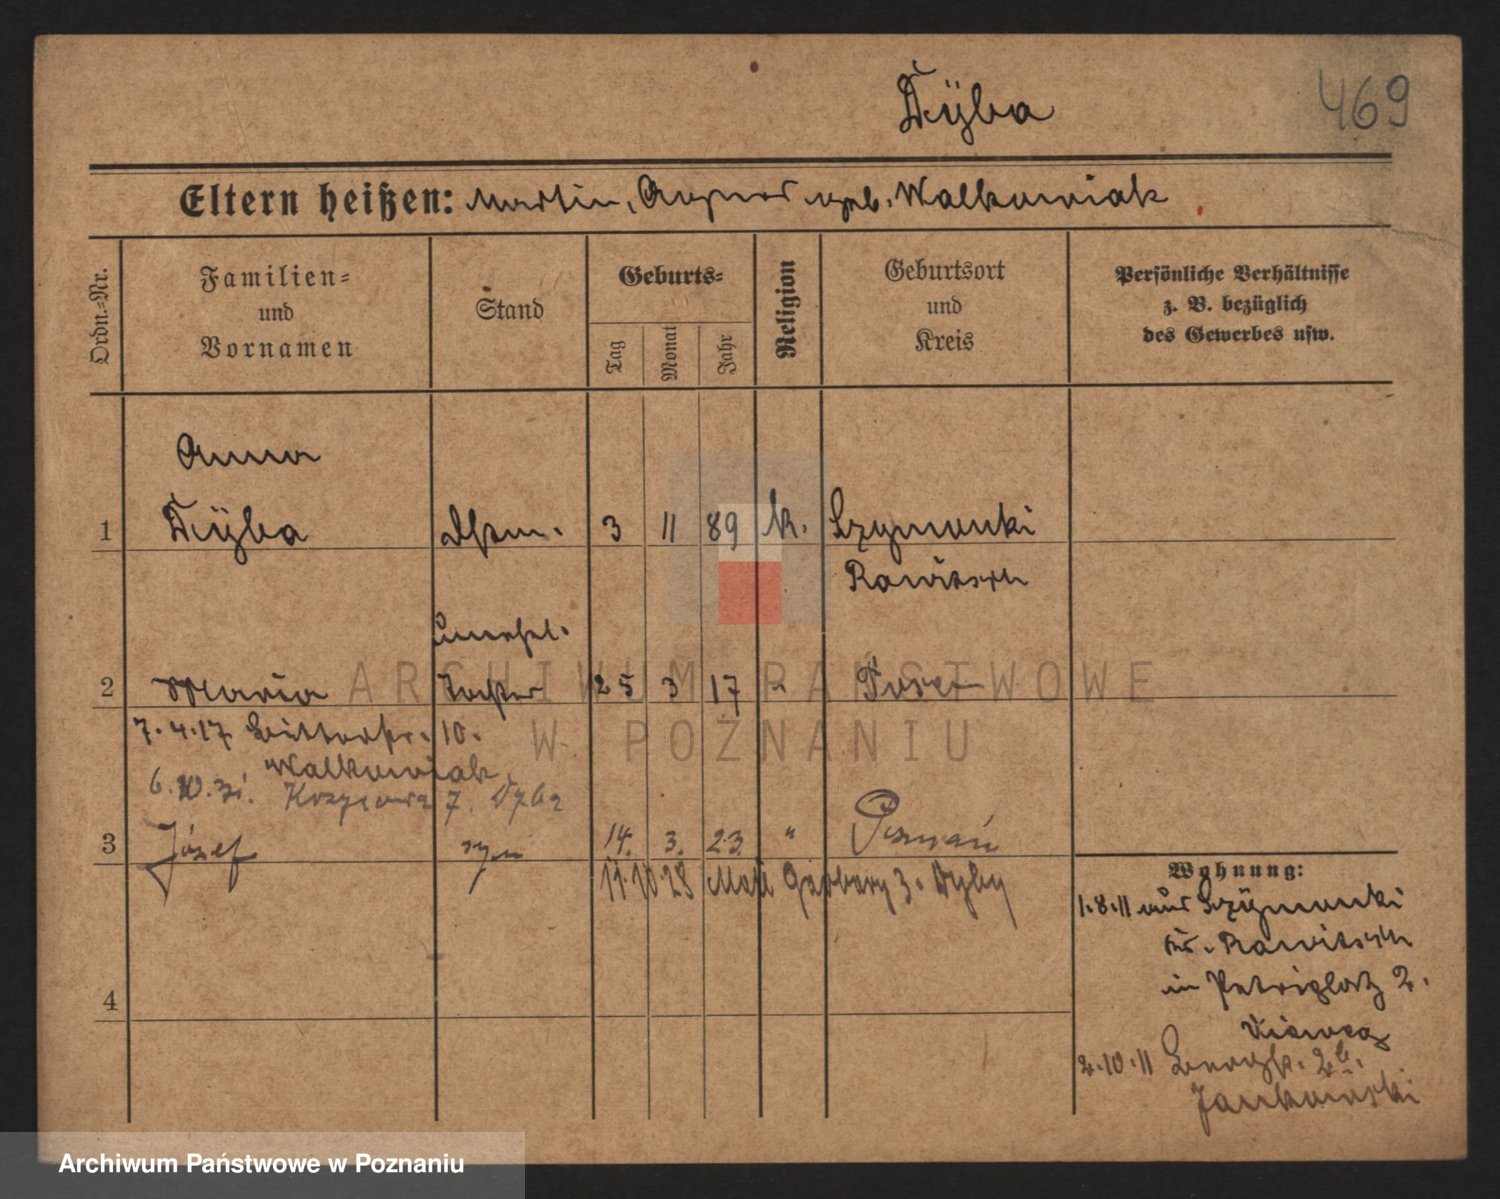 Dyba
469
Eltern heißen: Martin, Agnes geb. Walkowiak
Ordn.-Nr.
Familien- und Vornamen
Stand
Geburts-
Tag
Monat
Jahr
Religion
Geburtsort und Kreis
Persönliche Verhältnisse z. B. bezüglich des Gewerbes usw.
Anna
1 Dyba 3 11 89 k. Szymanki
Rawitsch
unehel.
2 Maria Tochter 25 3 17 " Posen
7.4.17 Bitterstr. 10.
Walkowiak
6.10.21. 7. Dyba
3 Józef syn 14. 3. 23. " Poznań
11.10.28 Małe Garbary 3. Dyby
4
Wohnung:
1.8.11 aus Szymanki
Kr. Rawitsch
in Petriplatz 2.
2.10.11
Jankowski
ARCHIWUM PAŃSTWOWE
W POZNANIU
Archiwum Państwowe w Poznaniu